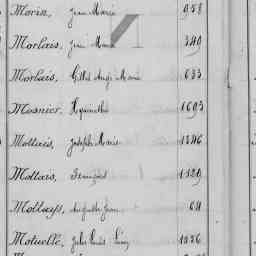 Morin, Jean Marie 958
Morlais, Jean Marie 349
Morlais, Gilles Ange Marie 633
Mosnier, Hyacinthe 1693
Mottais, Joseph Marie
Mottais, François 1129
Auguste Jean 64
Motuelle, Jules Louis